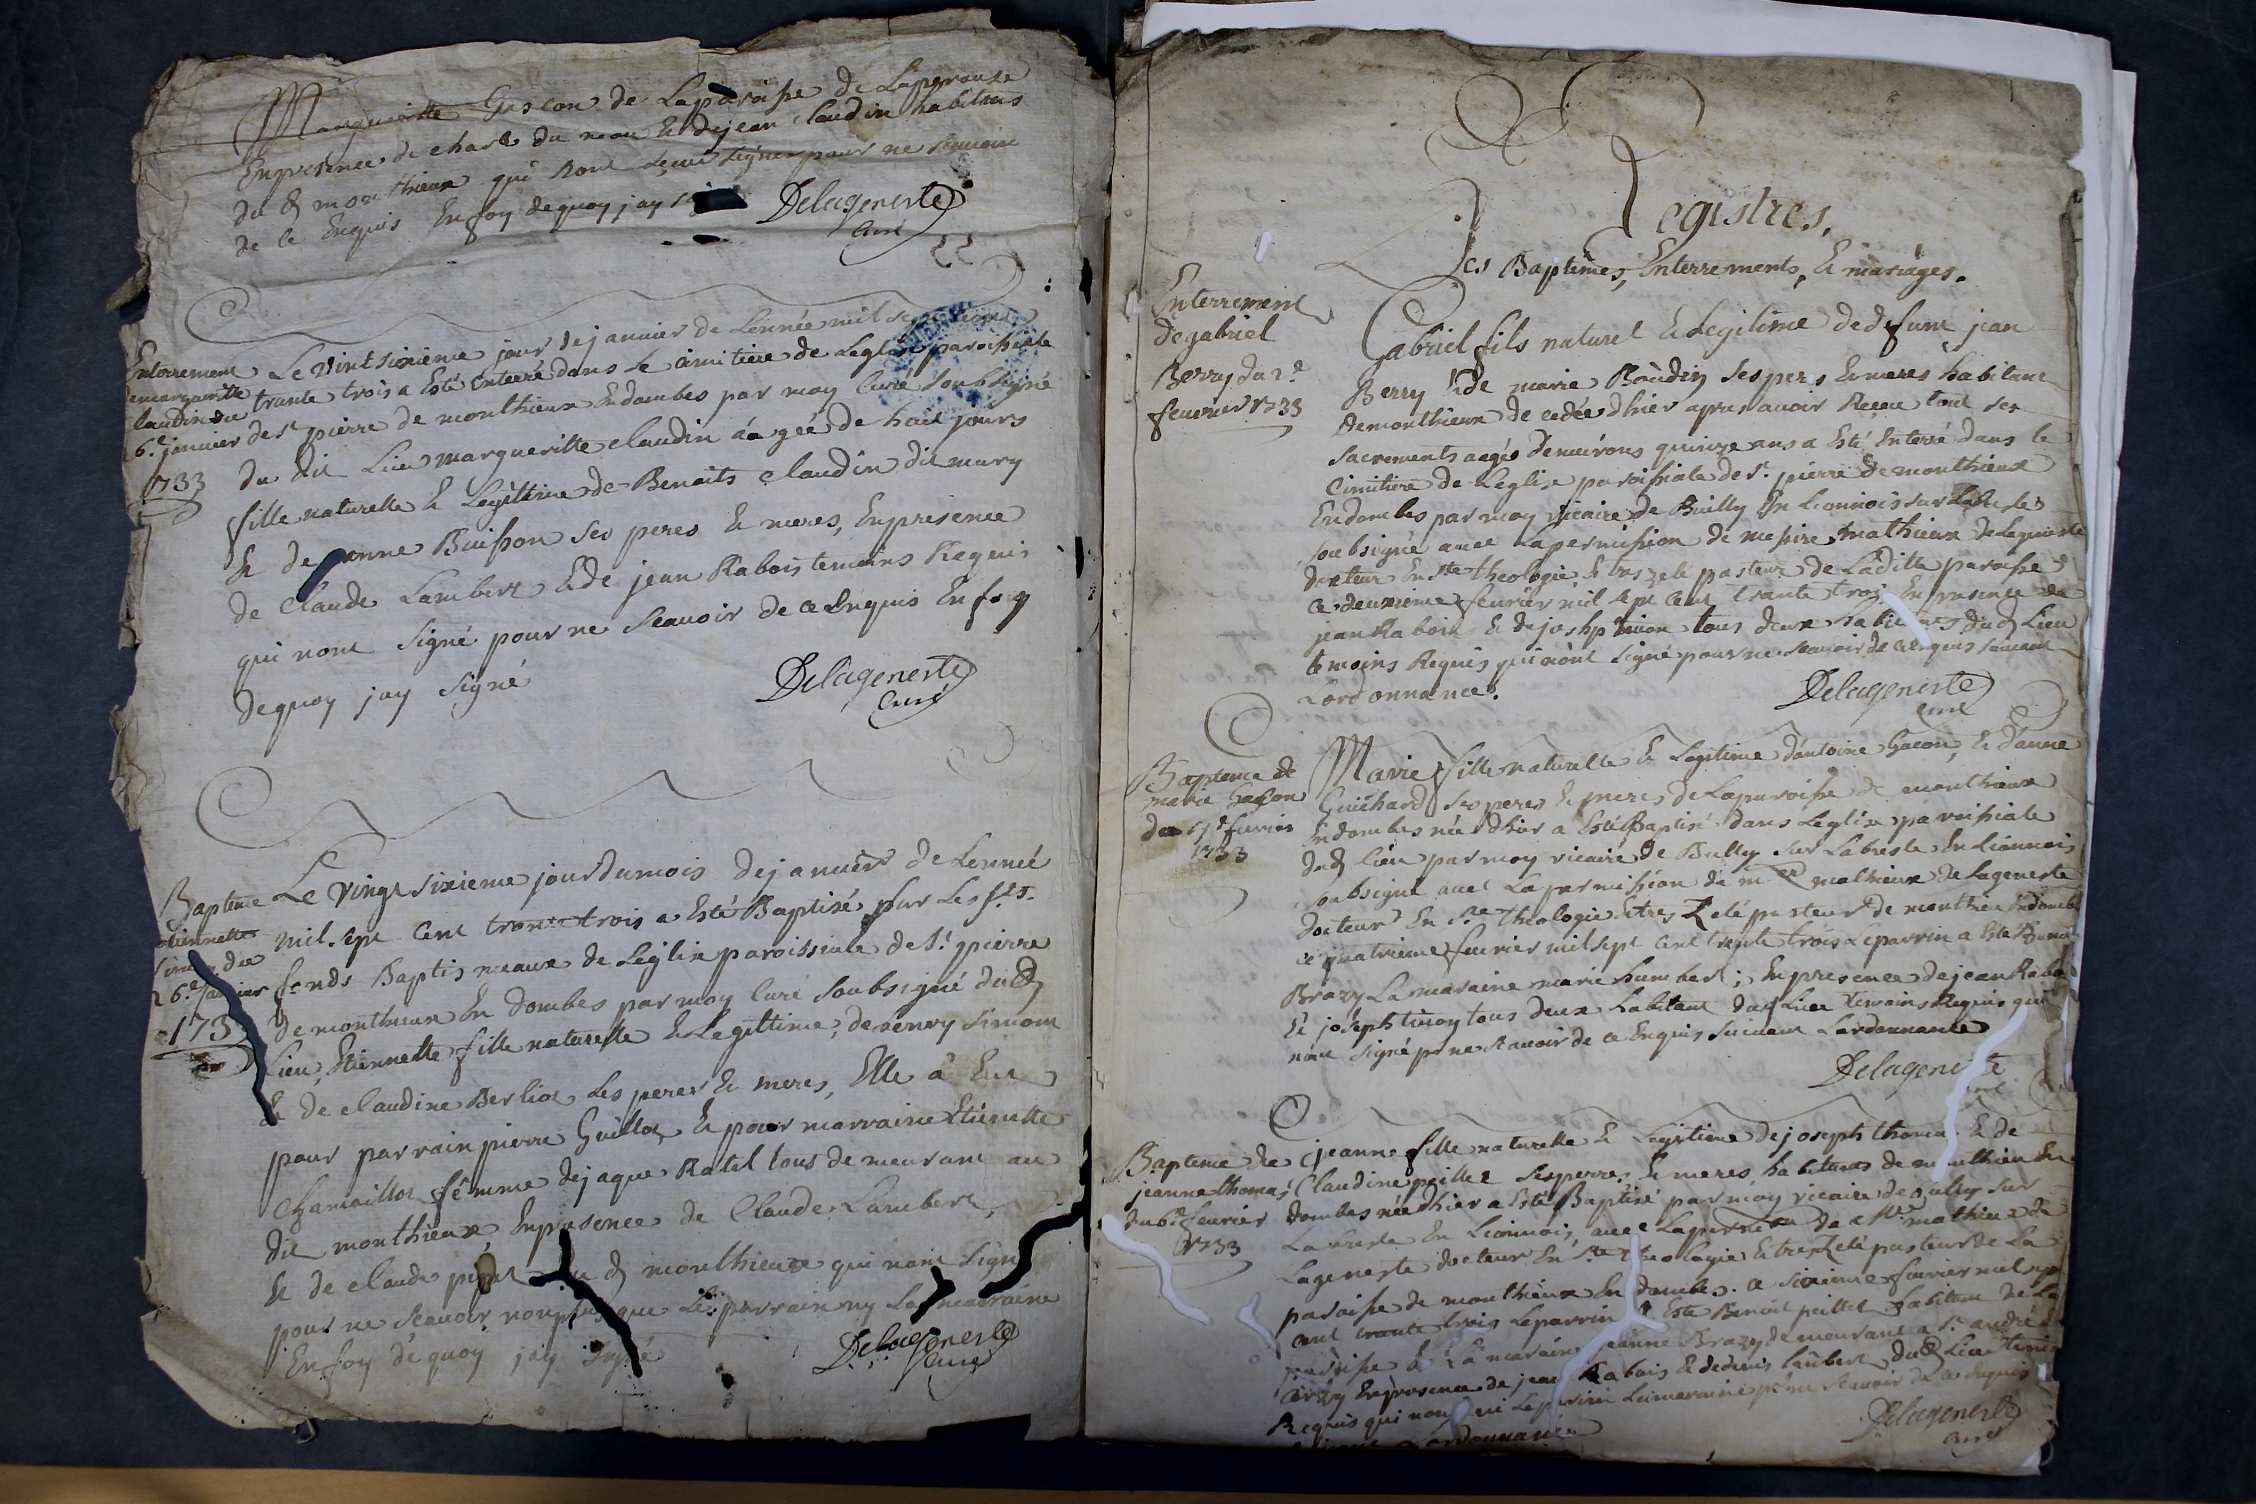 Margueritte Gascon de Laparoisse de Laperouse
Enpresence de charle du meau & dejean Claudin habitans
du d monthieux qui nont sceu signer pour ne scauoir
de ce Enquis Enfoy dequoy jay
Delageneste
Curé
Enterrement
demargueritte
claudin du
6.e januier
1733
Le Vint sixieme jour dejanuier de Lennée mil sept
trante trois a Esté Enterré dans le cimitiere de Leglise paroichiale
de st pierre de monthieux Endombes par moy Curé soubsigné
du dit Lieu margueritte claudin aagée de huit jours
fille naturelle & Legittime de Benoits Claudin dit mury
& de anne Buisson ses peres & meres, Enpresence
de Claude Lambert & de jean Rabois temoins Requis
qui nont signé pour ne scauoir de ce Enquis Enfoy
dequoy jay signé
Delageneste
Curé
Bapteme
etiennette
du
26.e januier
173
Le Vingt sixieme jour dumois dejanuier de Lenneé
mil sept cent trante trois a Esté Baptisé sur Les sts
fonds Baptismeaux de Leglise paroissiale de St pierre
demonthieux En dombes par moy Curé soubsigné dud
Lieu, Etiennette fille naturelle & Legittime, de Simon
& de claudine Berliot Ses peres & meres, Elle a Eut
pour parrain pierre Guillot & pour marraine Etienette
Chamaillot fême dejaque Ratel tous demeurant au
dit monthieux Enpresence de Claude Lambert,
& de claude d monthieux qui nont signé
pour ne scauoir nonplus que Le parrain ny La marraine
Enfoy dequoy jay signé
Delageneste
Curé
Registres,
Des Baptêmes, Enterrements, & mariages.
Enterrement
degabriel
Berry du 2.e
feurier 1733
Gabriel fils naturel & Legitime dedefunt jean
Berry & de marie Boudin ses peres & meres habitant
demonthieux decedée dhier apres auoir Reçeu tout ses
sacrements aagés denuirons quinze ans a Esté Enterré dans le
Cimitiere de Leglise paroissiale de st pierre de monthieux
Endombes par moy vicaire de Bully En Lionnois sur Labresle
soubsigné auec La permission de messire mathieux de Lageneste
docteur En ste theologie & tres zelé pasteur de Laditte paroisse
ce deuxieme feurier mil sept cent trante trois En presence de
jean Rabois & de joshp tinion tous deux habitans dud Lieu
temoins Requis qui nont signé pour ne scauoir de ce Enquis suiuant
Lordonnance.
Delageneste
Curé
Bapteme de
marie Gacon
du 4e feurier
1733
Marie fille naturelle & Legitime dantoine Gacon, & d'anne
Guichard ses peres & meres de Laparoisse de monthieux
Endombes née dhier a Esté Baptisé dans Leglise paroissiale
dud lieu par moy vicaire de Bully sur Labresle En Lionnois
soubsigné auec La permission de mre mathieux de Lageneste
docteur En ste theologie & tres Zelé pasteur de monthieu Endombe
ce quatrieme feurier mil sept cent trante trois Leparrin a Esté
Brazy La maraine marie humbert; Enpresence dejean Rabo
& joseph tinoy tous deux habitant dud Lieu temoins Requis qui
nont signé pr ne scauoir de ce Enquis suiuant Lordonnance
Delageneste
Bapteme de
jeanne thomas
du 6e feurier
1733
jeanne fille naturelle & Legitime dejoseph thomas & de
Claudine peillet ses peres & meres habitans de monthieu En
dombes née dhier a Esté Baptisé par moy vicaire de Bully sur
Labresle En Lionnois, auec La permission de mre mathieu de
Lageneste docteur En ste theologie & tres Zelé pasteur de La
paroisse de monthieux En dombes. ce sixieme feurier mil sept
cent trante trois Leparrin a Esté Benoit peillet habitant de La
paroisse & La maraine jeanne Brazy demeurant a st andré
Enpresence de jean Rabois & dedenis lambert dud Lieu
Requis qui nont ni Leparrin Lamaraine pr ne scauoir de ce Enquis
Lordonnance
Delageneste
Curé